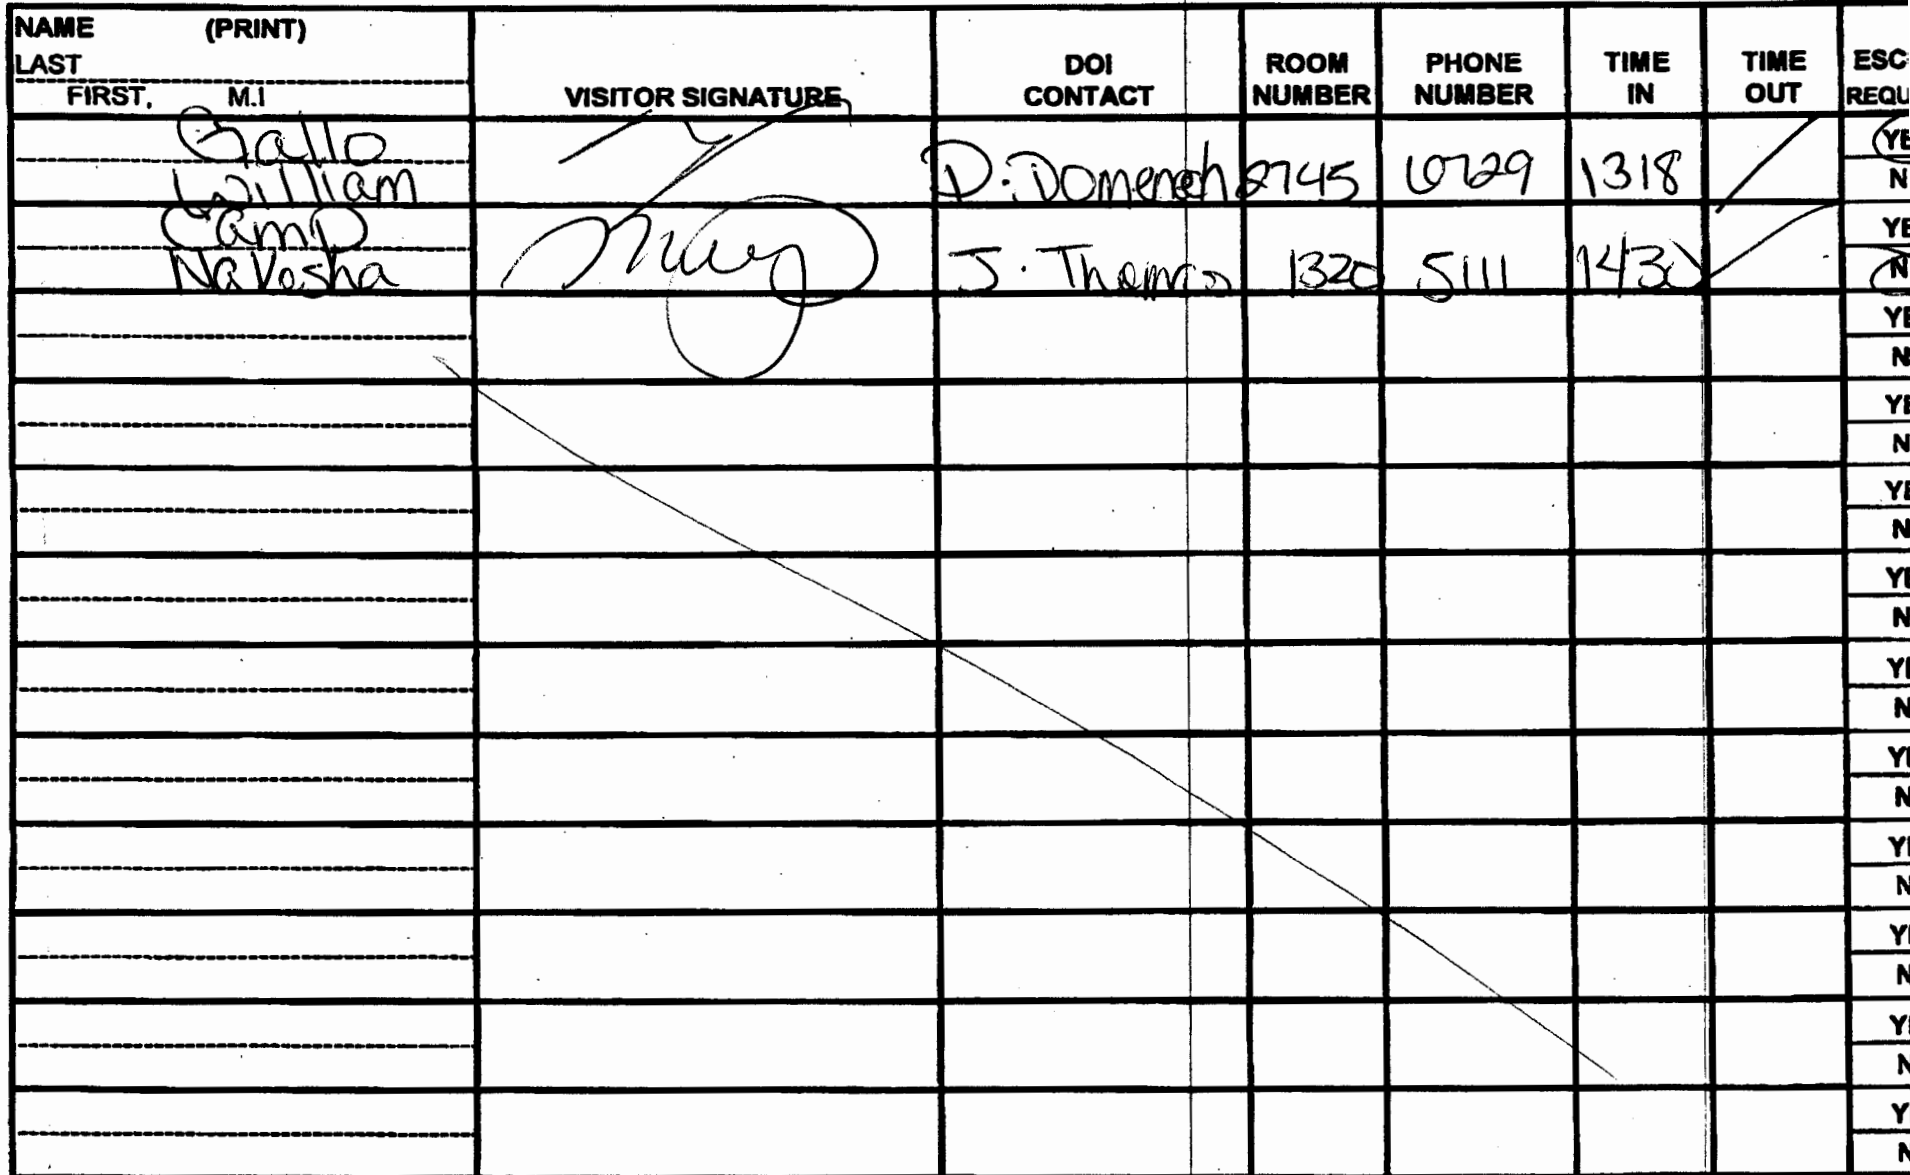 NAME (PRINT)
LAST
FIRST, M.I
VISITOR SIGNATURE
DOI
CONTACT
ROOM
NUMBER
PHONE
NUMBER
TIME
IN
TIME
OUT
ESC
REQU
Gallo
William
D. Domenech 2745 6729 1318
YE
N
Camp
NaKesha
J. Thomas 1320 5111 1430
YE
N
YE
N
YE
N
YE
N
YE
N
YE
N
YE
N
YE
N
YE
N
YE
N
Y
N